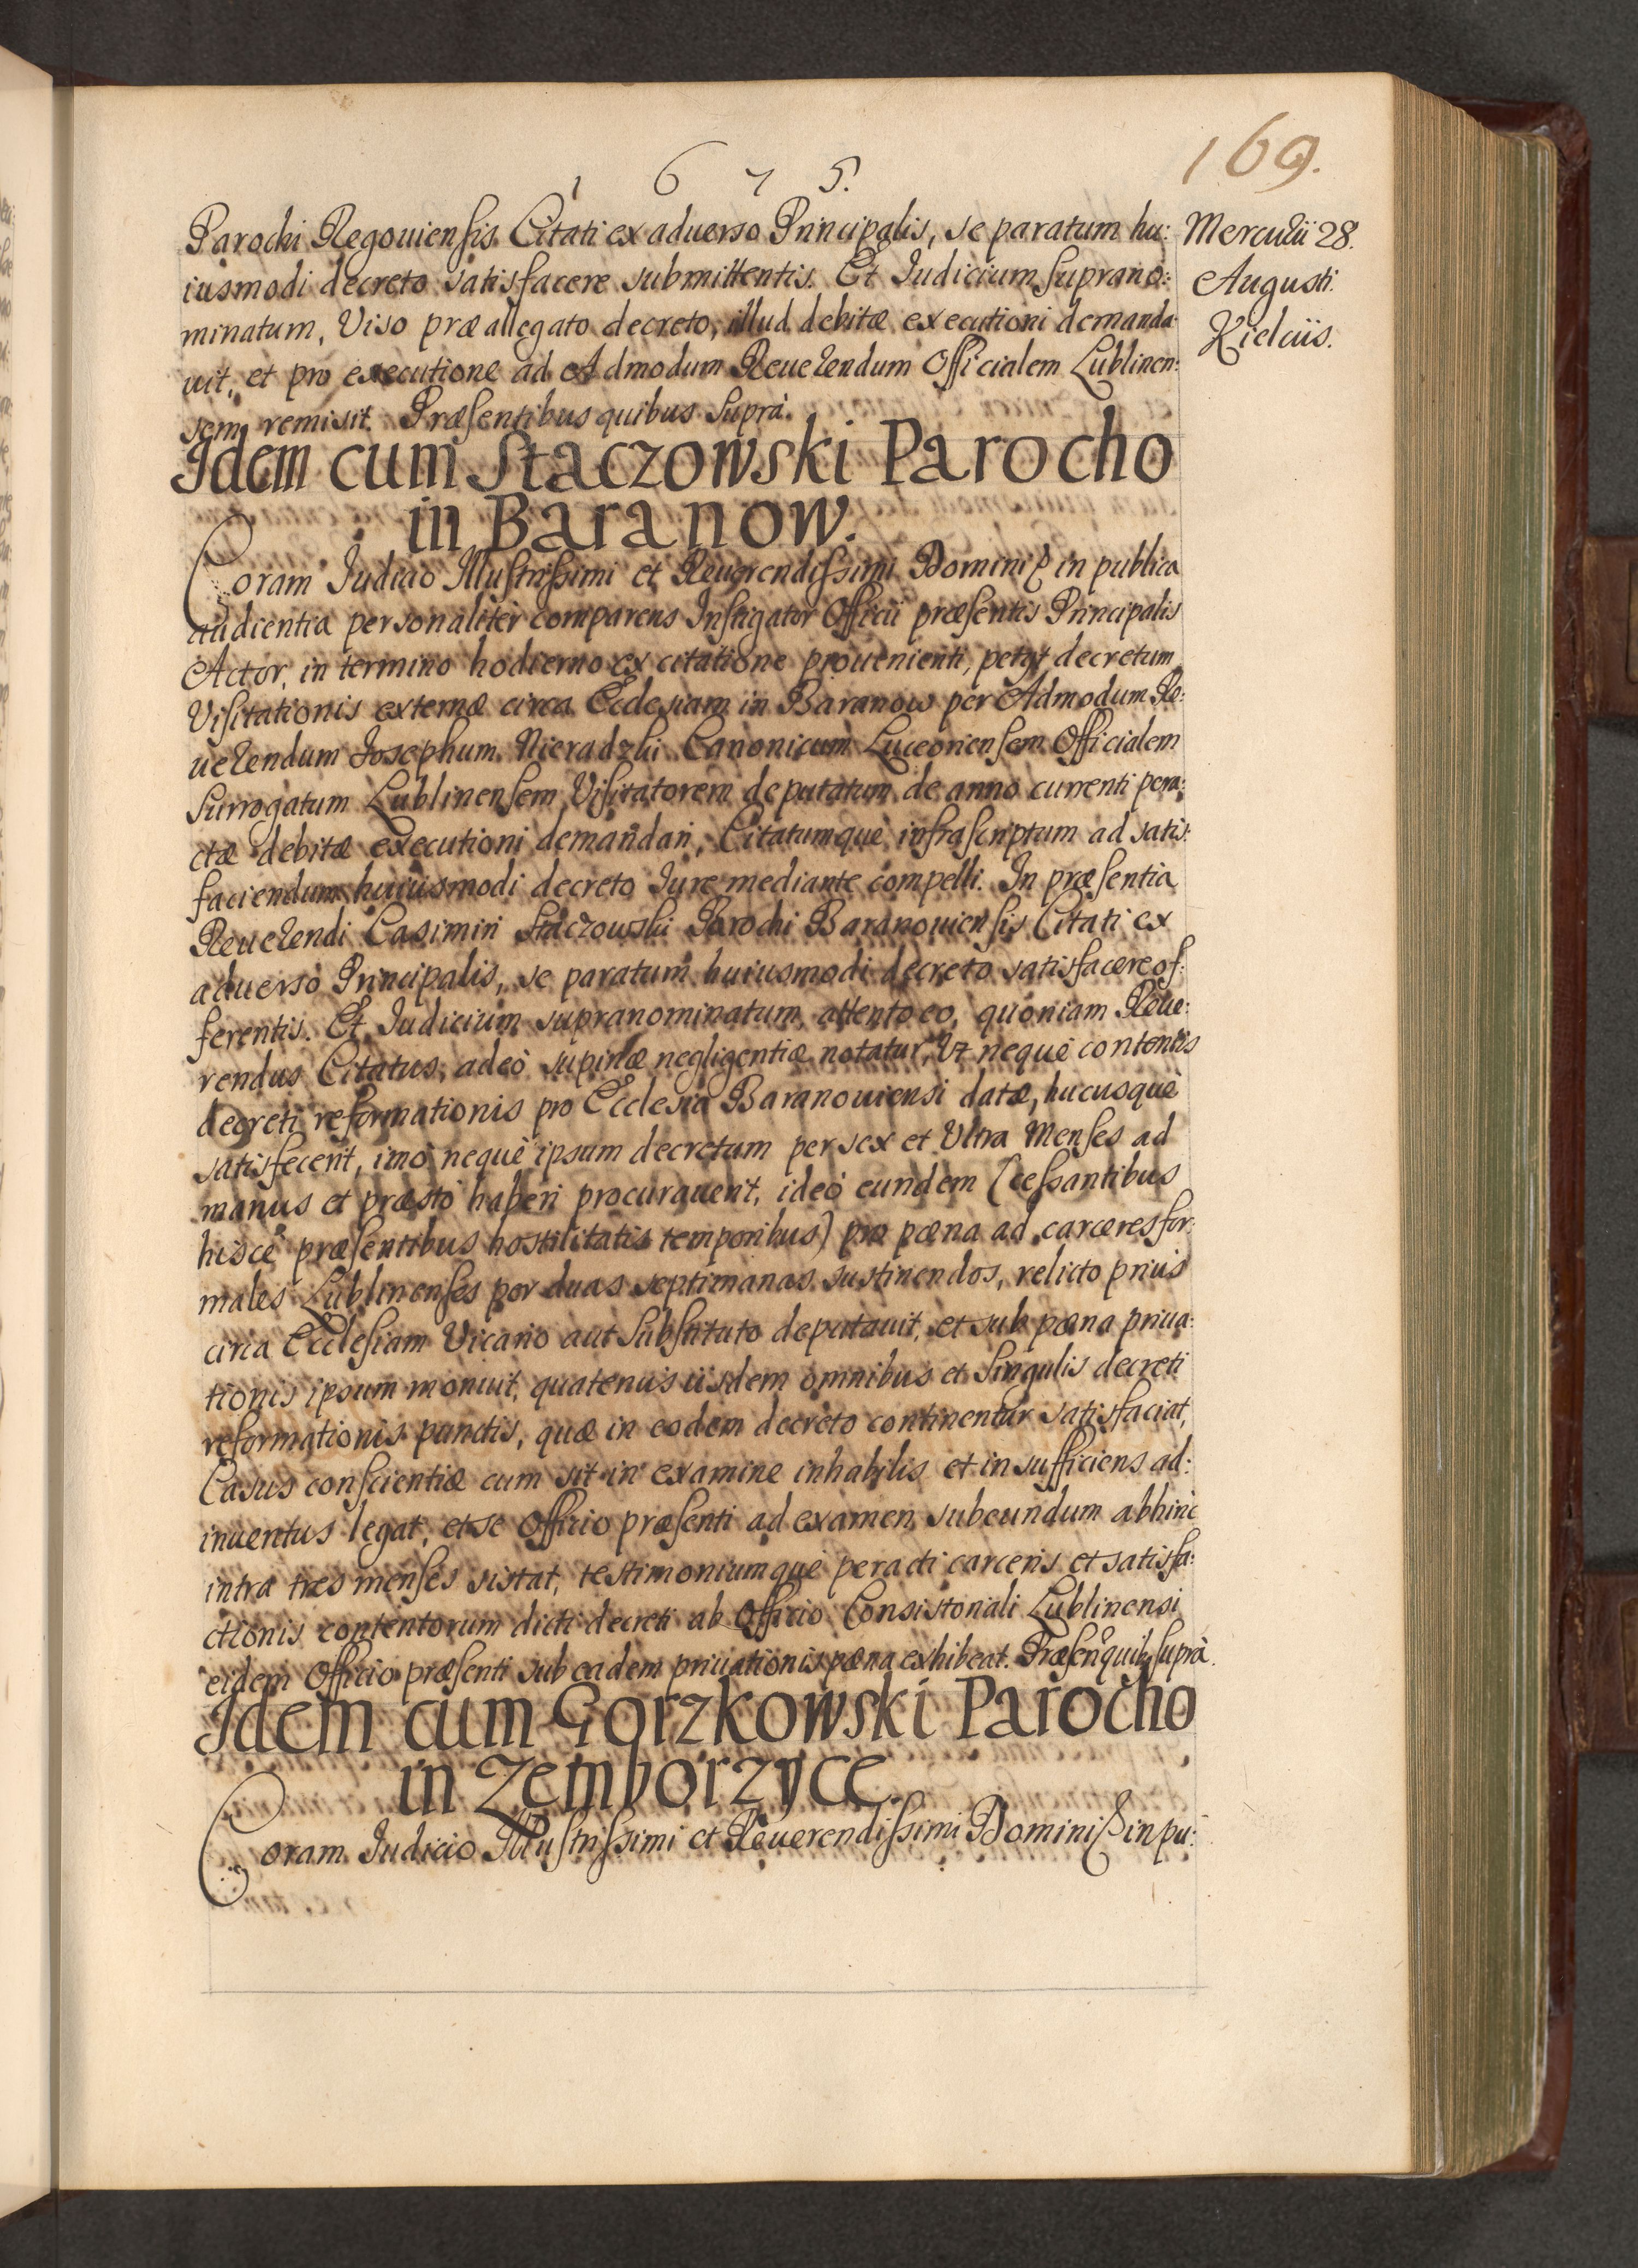 1675.
169.
Mercurii 28.
Augusti.
Kielciis.
Parochi Regouiensis Citati ex aduerso Principalis, se paratum hu:
iusmodi decreto satisfacere submittentis. Et Iudicium suprano:
minatum, Viso præallegato decreto, illud debitæ executioni demanda:
uit, et pro executione ad Admodum Reuerendum Officialem Lublinen:
sem remisit. Præsentibus quibus supra.
Idem cum Staczowski Parocho
in Baranow.
Coram Iudicio Illustrissimi et Reuerendissimi Domini in publica
audientia personaliter comparens Instigator Officii præsentis Principalis
Actor, in termino hodierno ex citatione prouenienti, petyt decretum
Visitationis externæ circa Ecclesiam in Baranow per Admodum Re:
uerendum Iosephum Nieradzki Canonicum Luceoriensem Officialem
Surrogatum Lublinensem, Visitatorem deputatum de anno currenti pera:
ctæ debitæ executioni demandari, Citatumque infrascriptum ad satis:
faciendum huiusmodi decreto Iure mediante compelli. In præsentia
Reuerendi Casimiri Staczowski Parochi Baranouiensis Citati ex
aduerso Principalis, se paratum huiusmodi decreto satisfacere of:
ferentis. Et Iudicium supranominatum, attento eo, quoniam Reue:
rendus Citatus, adeò supinæ negligentiæ notatur, Vt neque contentis
decreti reformationis pro Ecclesia Baranouiensi datæ, hucusquè
satisfecerit, imò nequè ipsum decretum per sex et Vltra Menses ad
manus et præstò haberi procurauerit, ideò eundem (cessantibus
hiscè præsentibus hostilitatis temporibus) pro pæna ad carceres for:
males Lublinenses per duas septimanas sustinendos, relicto prius
circa Ecclesiam Vicario aut Substituto deputauit, et sub pæna priua:
tionis ipsum monuit, quatenus iisdem omnibus et singulis decreti
reformationis punctis, quæ in eodem decreto continentur satisfaciat,
Casus conscientiæ cum sit in examine inhabilis et insufficiens ad:
inuentus legat, et se Officio præsenti ad examen subeundum abhinc
intra tres menses sistat, testimoniumque peracti carceris et satisfa:
ctionis contentorum dicti decreti ab Officio Consistoriali Lublinensi
eidem Officio præsenti sub eadem priuationis pæna exhibeat. Præsen quib supra.
Idem cum Gorzkowski Parocho
in Zemborzyce.
Coram Iudicio Illustrissimi et Reuerendissimi Domini in pu: